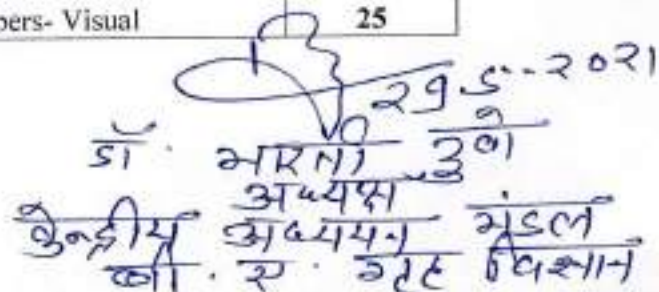 pers- Visual 25
29-5-2021
डॉ. भारती दुबे
अध्यक्ष
केन्द्रीय अध्ययन मंडल
बी. ए. गृह विज्ञान